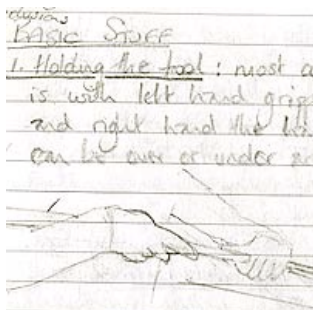 BASIC STUFF
1. Holding the tool : most
is with left hand
and right hand the
can be over or under